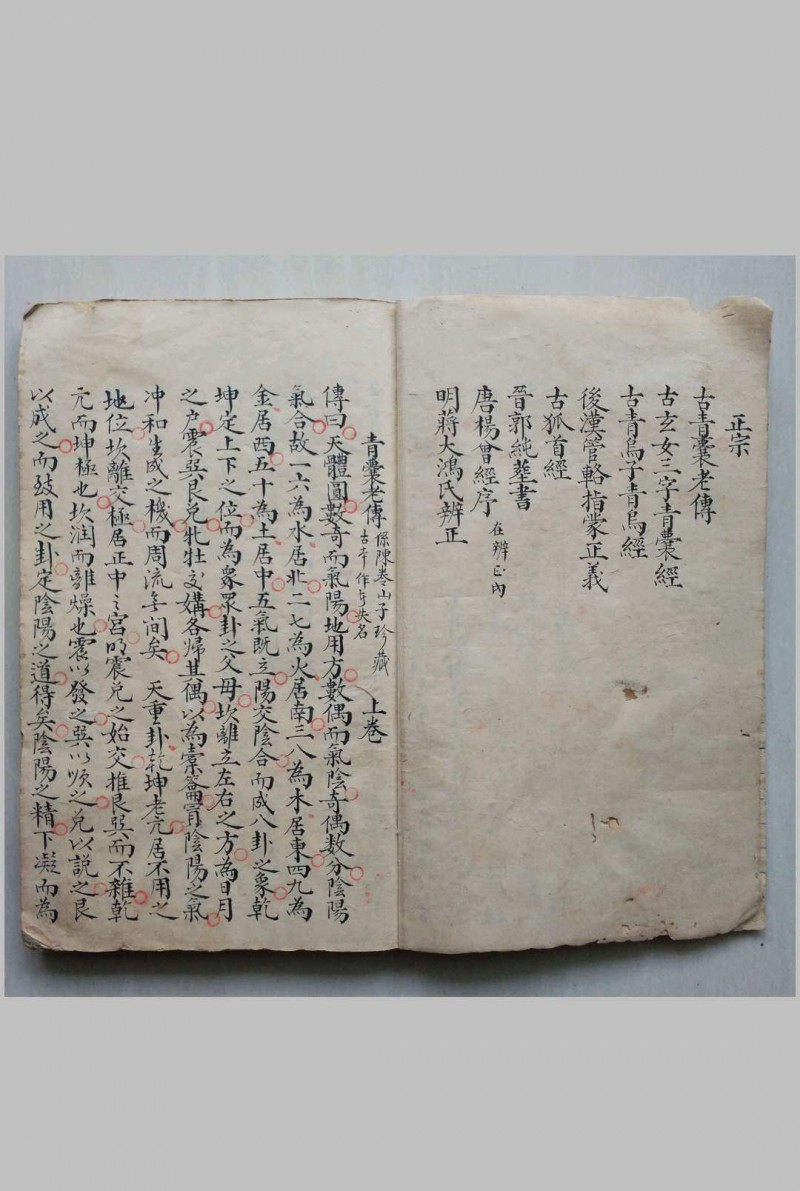 正宗
古青囊老傳
古玄女三字青囊經
古青烏子青烏經
後漢管輅指蒙正義
古狐首經
晉郭純葬書
唐楊曾經序 在辨正內
明蔣大鴻氏辨正
青囊老傳 係陳泰山子珍藏 上卷
古本作者失名
傳曰天體圓數奇而氣陽地用方數偶而氣陰奇偶數分陰陽
氣合故一六為水居北二七為火居南三八為木居東四九為
金居西五十為土居中五氣既立陽交陰合而成八卦之象乾
坤定上下之位而為眾眾卦之父母坎離立左右之方為日月
之户震巽艮兌牝牡交媾各歸其偶以為橐籥冒陰陽之氣
冲和生成之機而周流無间矣 天重卦乾坤老亢居不用之
地位坎離交極居正中之宮以震兌之始交推艮巽而不雜乾
亢而坤極也坎润而離燥也震以發之巽以順之兌以説之艮
以成之而致用之卦定陰陽之道得矣陰陽之精下凝而為